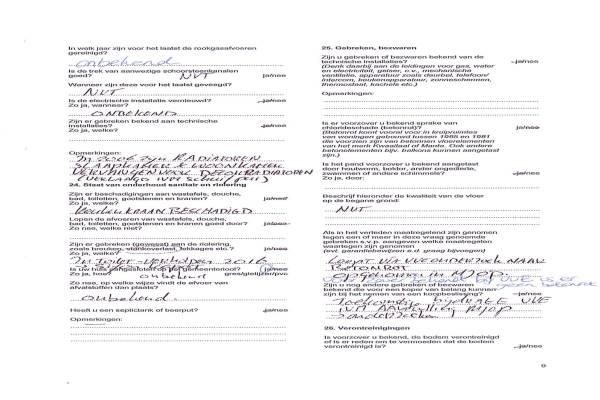 In welk jaar zijn voor het laatst de rookgasafvoeren
gereinigd?
onbekend
Is de trek van aanwezige schoorsteenkanalen
goed? NVT ja/nee
Wanneer zijn deze voor het laatst geveegd?
NVT
Is de electrische installatie vernieuwd? ja/nee
Zo ja, wanneer?
ONBEKEND
Zijn er gebreken bekend aan technische
installaties? ja/nee
Zo ja, welke?
Opmerkingen:
In 2005 zijn RADIATOREN
SLAAPKAMER & WOONKAMER
VERVANGEN VOOR DESIGN RADIATOREN
24. Staat van onderhoud sanitair en riolering
Zijn er beschadigingen aan wastafels, douche,
bad, toiletten, gootstenen en kranen? ja/nee
Zo ja, welke?
Keuken KRAAN BESCHADIGD
Lopen de afvoeren van wastafels, douche,
bad, toiletten, gootstenen en kranen goed door? ja/nee
Zo nee, welke niet?
Zijn er gebreken (geweest) aan de riolering,
zoals breuken, stankoverlast, lekkages etc.? ja/nee
Zo ja, welke?
In toilet - verholpen 2016
Is uw huis aangesloten op het gemeenteriool? ja/nee
Zo ja, hoe? onbekend
Zo nee, op welke wijze vindt de afvoer van
afvalstoffen dan plaats?
onbekend
Heeft u een septictank of beerput? ja/nee
Opmerkingen:
25. Gebreken, bezwaren
Zijn er gebreken of bezwaren bekend van de
technische installaties? ja/nee
(Denk daarbij aan de leidingen voor gas, water
en electriciteit, geiser, c.v., mechanische
ventilatie, apparatuur zoals deurbel, telefoon/
intercom, keukenapparatuur, zonneschermen,
thermostaat, kachels etc.)
Opmerkingen:
Is er voorzover u bekend sprake van
chlorideschade (betonrot)? ja/nee
(Betonrot komt vooral voor in kruipruimtes
van woningen gebouwd tussen 1965 en 1981
die voorzien zijn van betonnen vloerelementen
van het merk Kwaaitaal of Manta. Ook andere
betonelementen bijv. balkons kunnen aangetast
zijn.)
Is het pand voorzover u bekend aangetast
door houtworm, boktor, ander ongedierte,
zwammen of andere schimmels? ja/nee
Zo ja, door:
Beschrijf hieronder de kwaliteit van de vloer
op de begane grond:
NVT
Als in het verleden maatregelend zijn genomen
tegen een of meer in deze vraag genoemde
gebreken s.v.p. aangeven welke maatregelen
waartegen zijn genomen
(evt. garantiebewijzen e.d. graag bijvoegen)
Loopt via VVE ONDERZOEK NAAR
BETONROT
opgenomen in MJOP.
Zijn u nog andere gebreken of bezwaren
bekend die voor een koper van belang kunnen
zijn bij het nemen van een koopbeslissing? ja/nee
Toekomstige bijdrage VVE
IVM AANVULLING MJOP
26. Verontreinigingen
Is voorzover u bekend, de bodem verontreinigd
of is er reden om te vermoeden dat de bodem
verontreinigd is? ja/nee
9